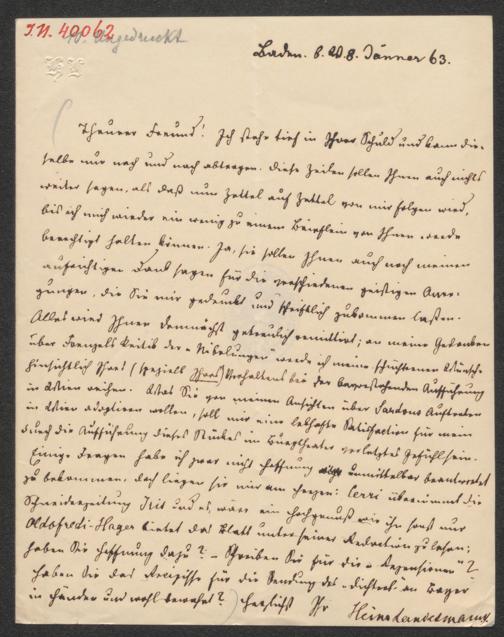 I.N. 40062
Ungedruckt
Baden b. W. 8. Jänner 63.
Theurer Freund! Ich stehe tief in Ihrer Schuld und kann die-
selbe nur nach und nach abtragen. Diese Zeilen sollen Ihnen auch nichts
weiter sagen, als daß nun Zettel auf Zettel von mir folgen wird,
bis ich mich wieder ein wenig zu einem Brieflein von Ihnen werde
berechtigt halten können. Ja, sie sollen Ihnen auch noch meinen
aufrichtigen Dank sagen für die verschiedenen geistigen Anre-
gungen, die Sie mir gedruckt und schriftlich zukommen lassen.
Alles wird Ihnen demnächst getreulich remittirt; an meine Gedanken
über Frenzels Kritik der „Nibelungen“ werde ich meine schüchternen Wünsche
hinsichtlich Ihres (speziell Ihres) Verhaltens bei der bevorstehenden Aufführung
in Wien reihen. Was Sie von meinen Ansichten über Sardous Auftreten
in Wien adoptiren wollen, soll mir eine lebhafte Satisfaction für mein
durch die Aufführung dieses Stückes im Burgtheater verletztes Gefühl sein.
Einige Fragen habe ich zwar nicht Hoffnung unmittelbar beantwortet
zu bekommen, doch liegen sie mir am Herzen: übernimmt die
Schneiderzeitung Iris und es wäre ein Hochgenuß wie ihn sonst nur
Oldofredi-Hager bietet das Blatt unter seiner Redaction zu lesen;
haben Sie Hoffnung dazu? – Schreiben Sie für die „Rezensionen“?
haben Sie das Recepisse für die Sendung des „Dichters“ an Bayer
in Händen und wohl bewahrt? Herzlichst Ihr
Heinr Landesmann